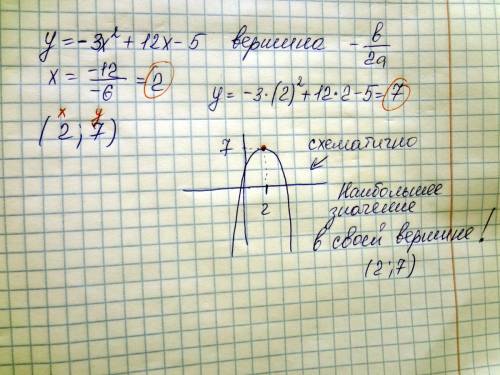 y = -3x² + 12x - 5 вершина -b/2a
x = -12/-6 = 2
y = -3·(2)² + 12·2 - 5 = 7
x y
(2; 7)
7 схематично
2
Наибольшее
значение
в своей вершине!
(2;7)